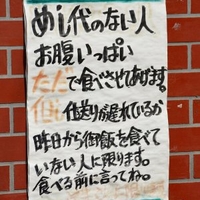 めし代のない人
お腹いっぱい
ただで食べさせてあげます。
仕送りが遅れているか
昨日から御飯を食べて
いない人に限ります。
食べる前に言ってね。